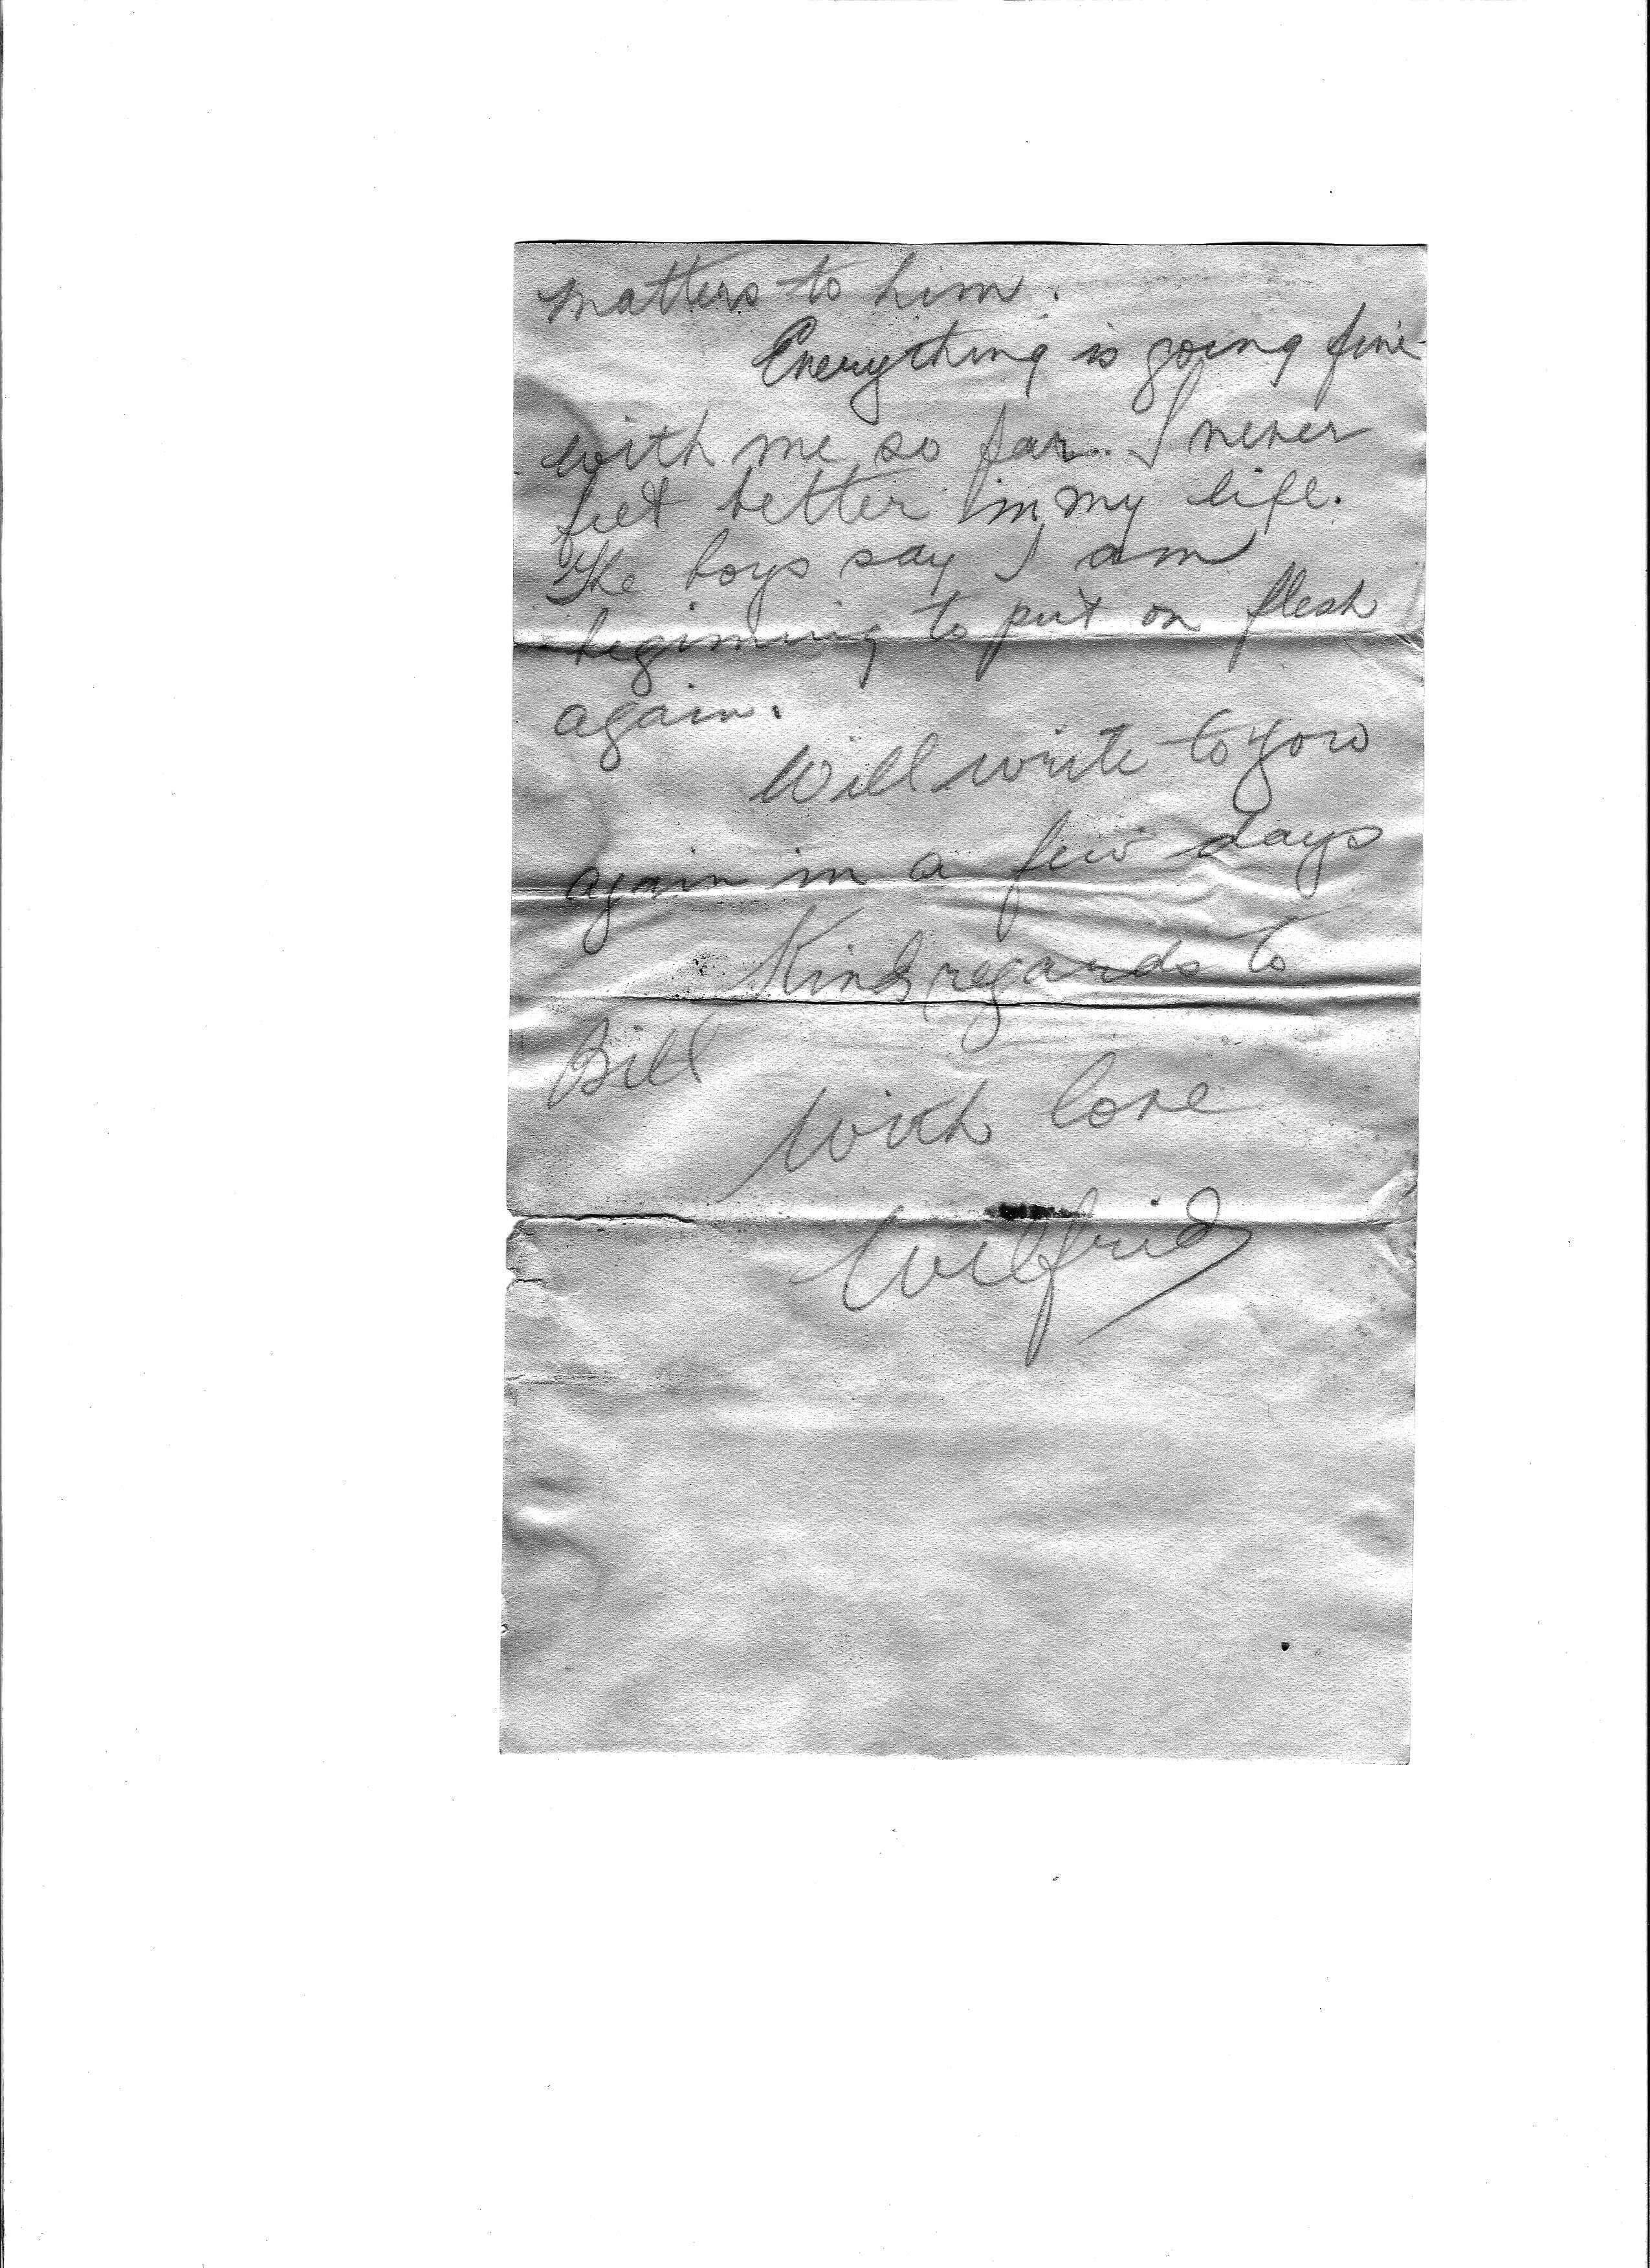 matters to him.
Everything is going fine
with me so far. I never
felt better in my life.
The boys say I am
begining to put on flesh
again.
Will write to you
again in a few days
Kind regards to
Bill
With love
Wilfrid